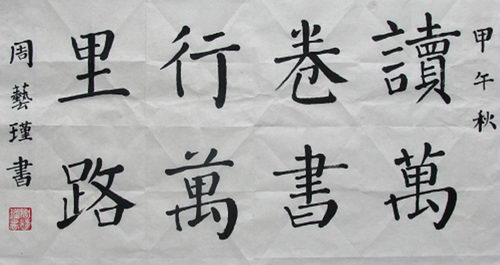 甲午秋
讀萬
卷書
行萬
里路
周藝瑾書